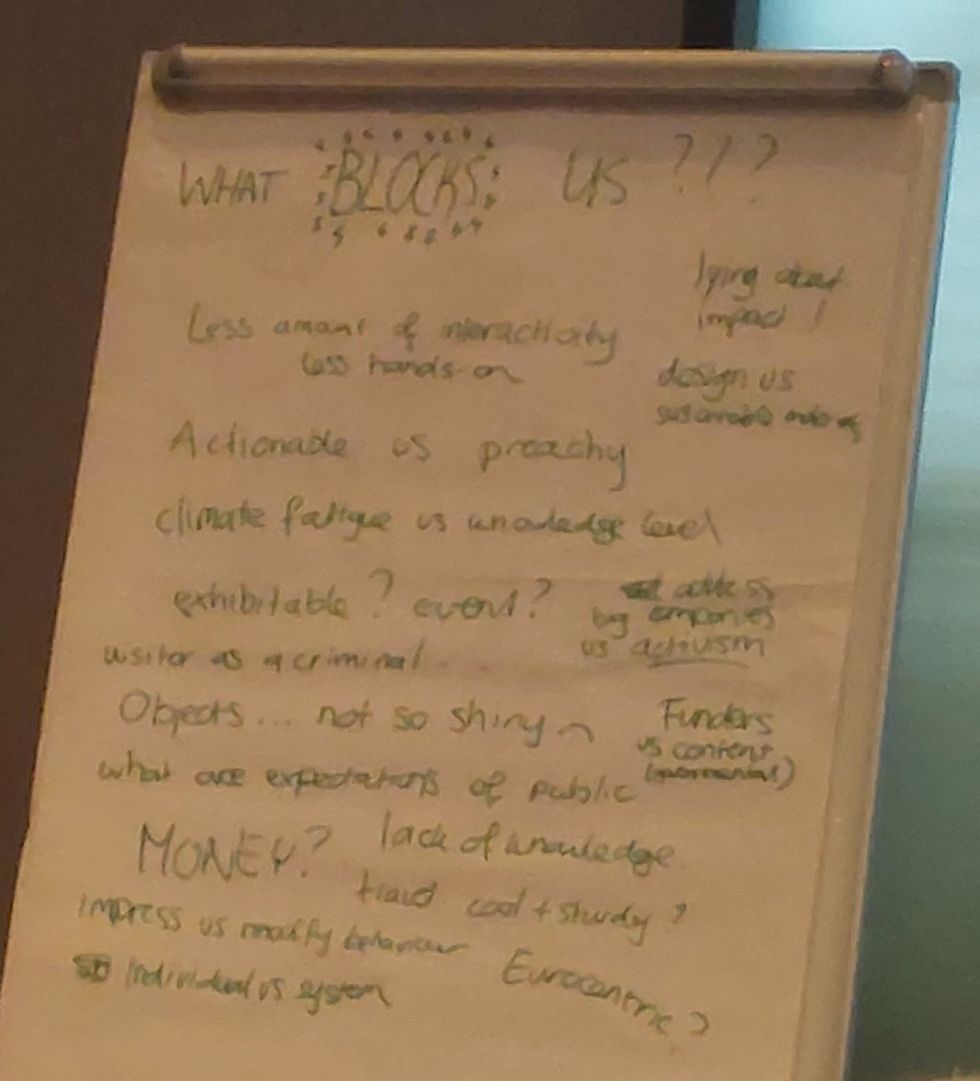 WHAT BLOCKS US ???
lying about
impact !
Less amant of interactivity
less hands-on
design vs
sustainable
Actionable vs preachy
climate fatigue vs knowledge level
exhibitable? event?
by companies
vs activism
visitor as a criminal
Objects... not so shiny
Funders
vs content
what are expectations of public
MONEY? lack of knowledge
cool + sturdy?
impress vs modify behaviour
Individual vs system
Eurocentric?